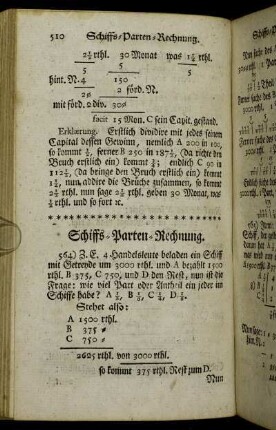 510 Schiffs-Parten-Rechnung.
2½ rthl. 30 Monat was 1¼ rthl.
5 5
hint. N. 4 150
20 2 förd. N.
mit förd. 2 div. 300
facit 15 Mon. C sein Capit. gestand.
Erklærung. Erstlich dividire mit jedes seinen
Capital dessen Gewinn, nemlich A 200 in 100,
so kommt ½, ferner B 250 in 187½, (da richte den
Bruch erstlich ein) kommt ¾; endlich C 90 in
112½, (da bringe den Bruch erstlich ein) kommt
1¼, nun addire die Brüche zusammen, so kommt
2½ rthl. nun sage 2½ rthl. geben 30 Monat, was
½ rthl. und so fort ꝛc.
Schiffs-Parten-Rechnung.
564) Z. E. 4 Handelsleute beladen ein Schiff
mit Getreyde um 3000 rthl. und A bezahlt 1500
rthl. B 375, C 750, und D den Rest, nun ist die
Frage: wie viel Part oder Antheil ein jeder im
Schiffe habe? A ½, B ⅛, C ¼, D ⅛.
Stehet also:
A 1500 rthl.
B 375 〃
C 750 〃
2625 rthl. von 3000 rthl.
so kommt 375 rthl. Rest zum D.
Nun